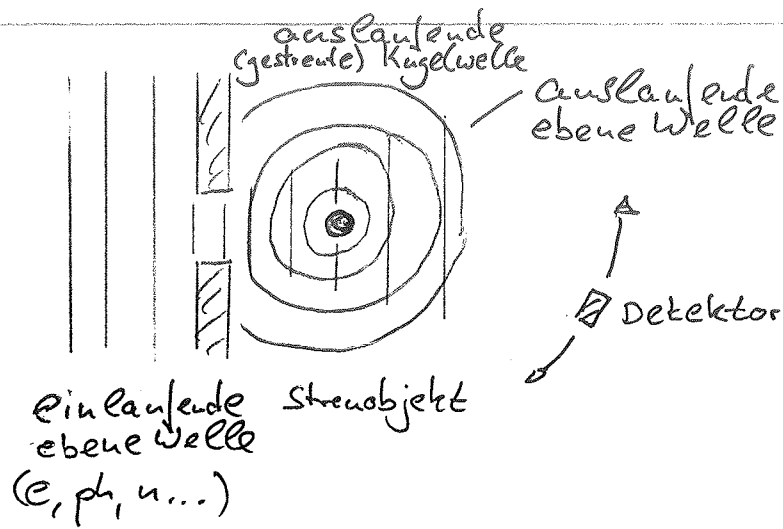 auslaufende
(gestreute) Kugelwelle
auslaufende
ebene Welle
Detektor
einlaufende
ebene Welle
(e, ph, n...)
Streuobjekt